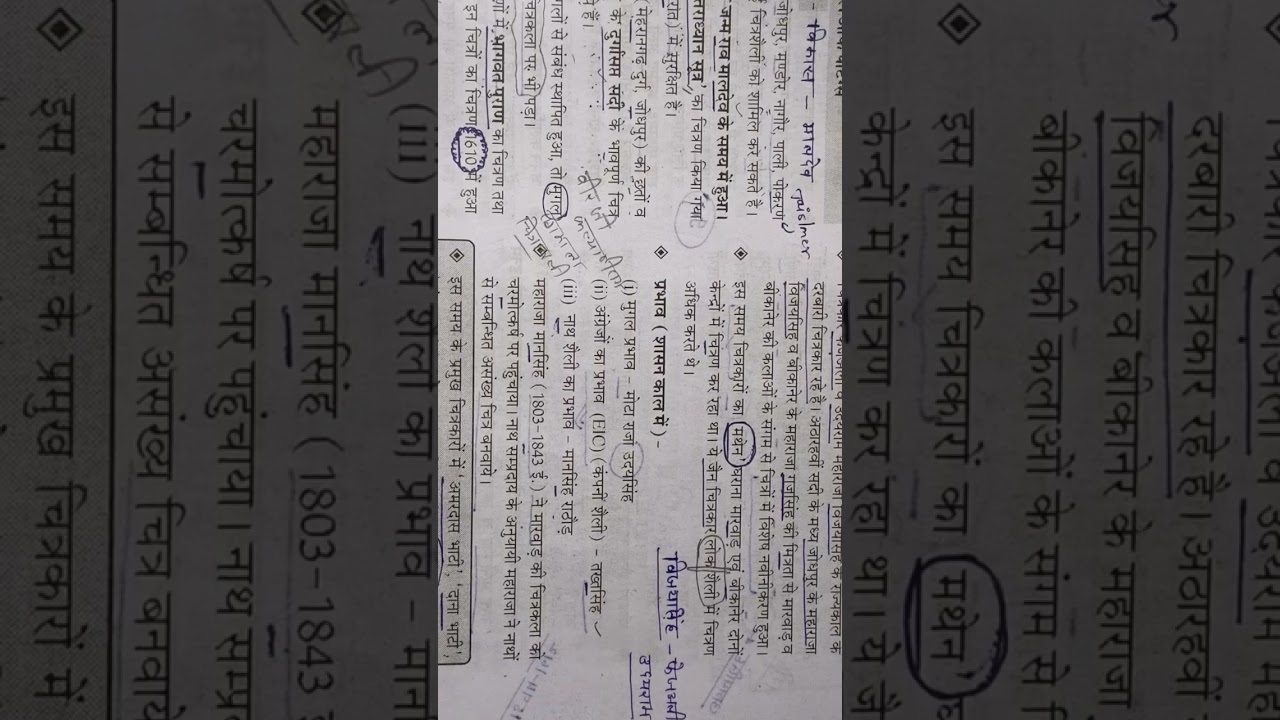 विकास – मालदेव
जोधपुर, मण्डोर, नागौर, पाली, पोकरण
चित्रशैली को शामिल कर सकते है।
जन्म राव मालदेव के समय में हुआ।
सूत्र' का चित्रण किया गया
में सुरक्षित है।
(मेहरानगढ़ दुर्ग, जोधपुर) की छतों व
के दुर्गासप्त सती के भावपूर्ण चित्र
में है।
से संबंध स्थापित हुआ, तो मुगल
चित्रकला पर भी पड़ा।
में भागवत पुराण का चित्रण तथा
इन चित्रों का चित्रण 1610 में हुआ
दरबारी चित्रकार रहे है। अठारहवीं सदी के मध्य जोधपुर के महाराजा
विजयसिंह व बीकानेर के महाराजा गजसिंह की मित्रता से मारवाड़ व
बीकानेर की कलाओं के संगम से चित्रों में विशेष नवीनीकरण हुआ।
❖ इस समय चित्रकारों का 'मथेन' घराना मारवाड़ एवं बीकानेर दोनों
केन्द्रों में चित्रण कर रहा था। ये जैन चित्रकार लोक शैली में चित्रण
अधिक करते थे।
❖ प्रभाव (शासन काल में) -
(i) मुगल प्रभाव – मोटा राजा उदयसिंह
(ii) अंग्रेजों का प्रभाव (EIC) (कंपनी शैली) – तख्तसिंह
(iii) नाथ शैली का प्रभाव – मानसिंह राठौड़
महाराजा मानसिंह (1803-1843 ई.) ने मारवाड़ की चित्रकला को
चरमोत्कर्ष पर पहुंचाया। नाथ सम्प्रदाय के अनुयायी महाराजा ने नाथों
से सम्बन्धित असंख्य चित्र बनवाये।
❖ इस समय के प्रमुख चित्रकारों में 'अमरदास भाटी', 'दाना भाटी',
विजयसिंह –
उदयराम